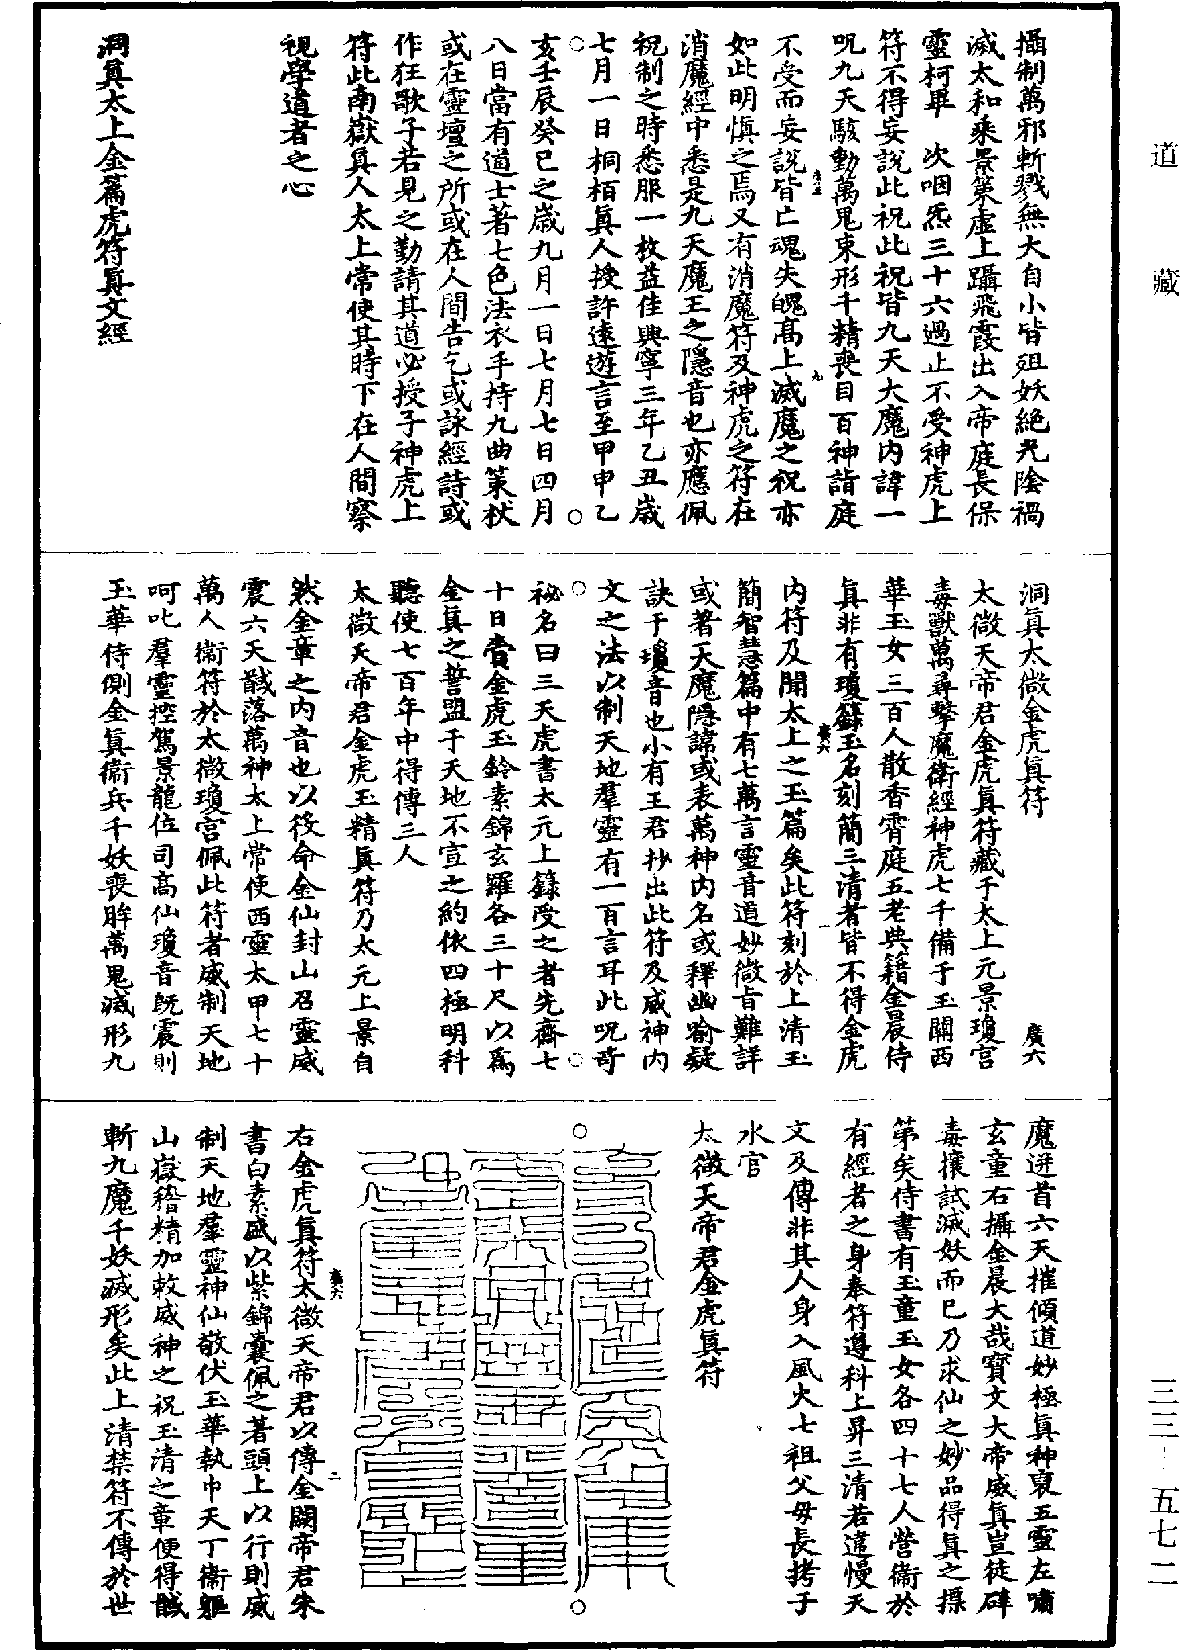 道藏
三三—五七二
攝制萬邪斬戮無大自小皆殂妖絕光陰禍
滅太和乘景策虛上躡飛霞出入帝庭長保
靈柯畢　次咽炁三十六過止不受神虎上
符不得妄說此祝此祝皆九天大魔內諱一
呪九天駭動萬鬼束形千精喪目百神詣庭
不受而妄說皆亡魂失魄高上滅魔之祝亦
如此明慎之焉又有消魔符及神虎之符在
消魔經中悉是九天魔王之隱音也亦應佩
祝制之時悉服一枚益佳興寧三年乙丑歲
七月一日桐栢真人授許遠遊言至甲申乙
亥壬辰癸巳之歲九月一日七月七日四月
八日當有道士著七色法衣手持九曲策杖
或在靈壇之所或在人間告乞或詠經詩或
作狂歌子若見之勤請其道必授子神虎上
符此南嶽真人太上常使其時下在人間察
視學道者之心
洞真太上金篇虎符真文經
洞真太微金虎真符　廣六
太微天帝君金虎真符藏于太上元景瓊宮
毒獸萬尋擊魔衛經神虎七千備于玉闕西
華玉女三百人散香霄庭五老典籍金晨侍
真非有瓊籙玉名刻簡三清者皆不得金虎
內符及開太上之玉篇矣此符刻於上清玉
簡智慧篇中有七萬言靈音道妙微旨難詳
或著天魔隱諱或表萬神內名或釋幽喻疑
訣于瓊音也小有王君抄出此符及威神內
文之法以制天地羣靈有一百言耳此呪奇
祕名曰三天虎書太元上籙受之者先齋七
十日賫金虎玉鈴素錦玄羅各三十尺以爲
金真之誓盟于天地不宣之約依四極明科
聽使七百年中得傳三人
太微天帝君金虎玉精真符乃太元上景自
然金章之內音也以役命金仙封山召靈威
震六天馘落萬神太上常使西靈太甲七十
萬人衞符於太微瓊宮佩此符者威制天地
呵叱羣靈控駕景龍位司高仙瓊音既震則
玉華侍側金真衞兵千妖喪眸萬鬼滅形九
魔迸首六天摧傾道妙極真神裒五靈左嘯
玄童右攝金晨大哉寶文大帝威真豈徒辟
毒攘試滅妖而已乃求仙之妙品得真之摽
第矣侍書有玉童玉女各四十七人營衞於
有經者之身奉符遵科上昇三清若違慢天
文及傳非其人身入風火七祖父母長拷于
水官
太微天帝君金虎真符
右金虎真符太微天帝君以傳金闕帝君朱
書白素盛以紫錦囊佩之著頭上以行則威
制天地羣靈神仙敬伏玉華執巾天丁衞軀
山嶽稽精加敕威神之祝玉清之章便得馘
斬九魔千妖滅形矣此上清禁符不傳於世